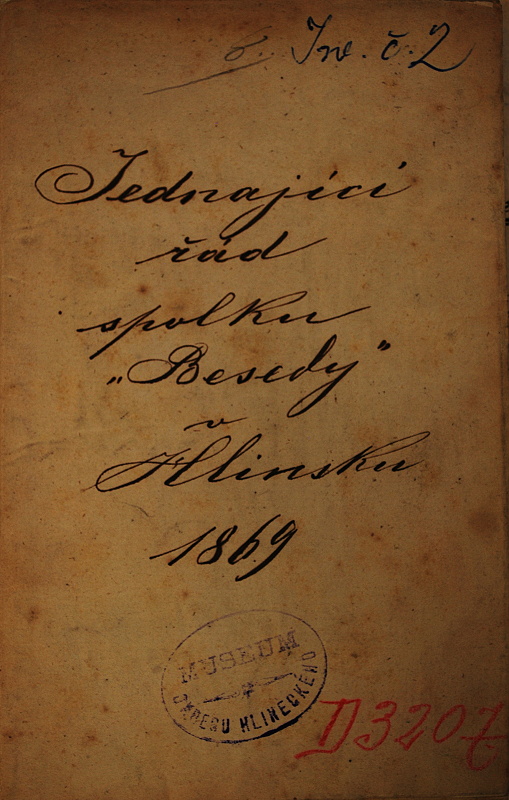 6. Inv. č. 2
Jednající
řád
spolku
„Besedy"
v
Hlinsku
1869
MUSEUM
OKRESU HLINECKÉHO
D3207